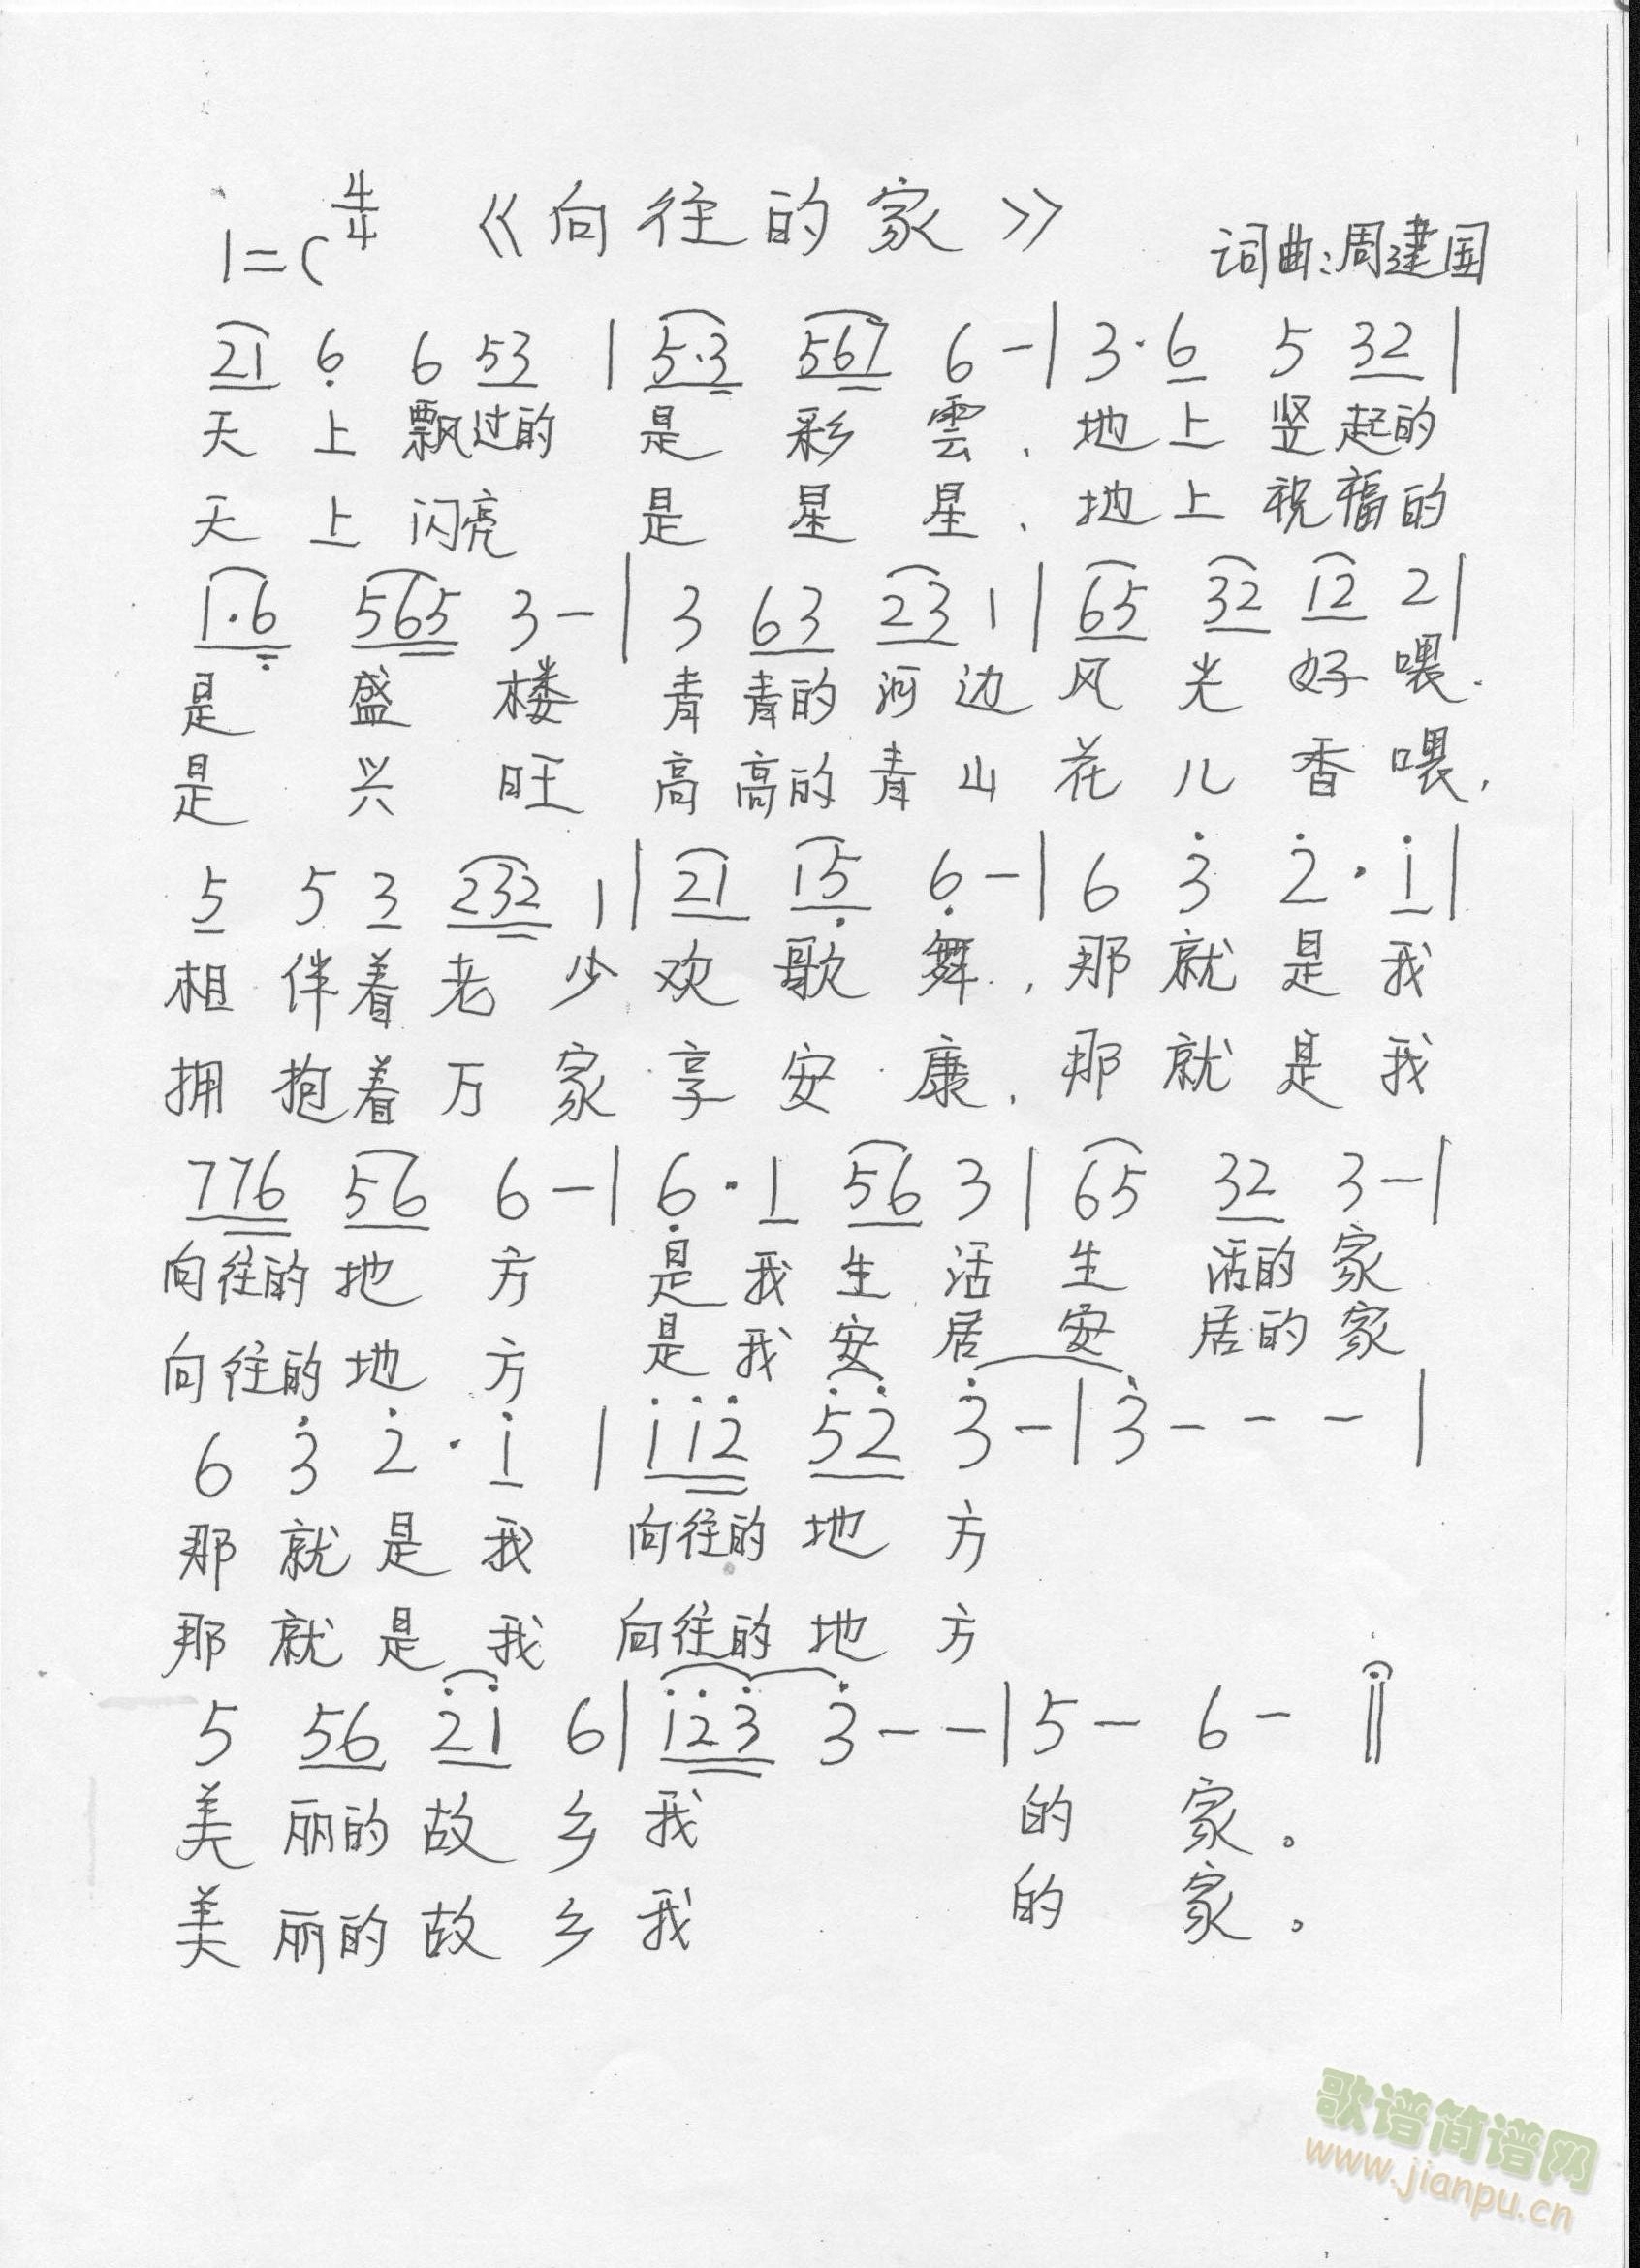 1=C 4/4 《向往的家》 词曲:周建国
21 6 6 53 | 5·3 567 6 - | 3·6 5 32 |
天上飘过的 是彩雲、地上竖起的
天上闪亮 是星星、地上祝福的
1·6 565 3 - | 3 63 23 1 | 65 32 12 2 |
是盛楼 青青的河边风光好喂.
是兴旺 高高的青山花儿香喂,
5 5 3 232 1 | 21 15 6 - | 6 3 2·1 |
相伴着老少欢歌舞.,那就是我
拥抱着万家享安康、那就是我
776 56 6 - | 6·1 56 3 | 65 32 3 - |
向往的地方 是我生活生活的家
向往的地方 是我安居安居的家
6 3 2·1 | 112 52 3 - | 3 - - - |
那就是我 向往的地方
那就是我 向往的地方
5 56 21 6 | 123 3 - - | 5 - 6 - ‖
美丽的故乡我 的家。
美丽的故乡我 的家。
歌谱简谱网
www.jianpu.cn